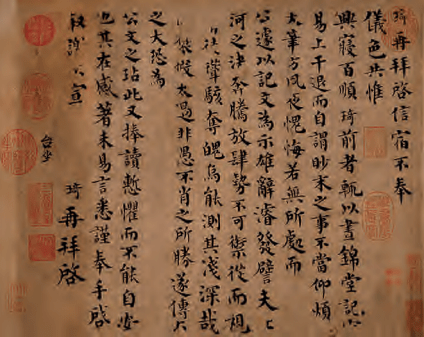 琦再拜啓信宿不奉
儀色共惟
興寢百順琦前者輒以晝錦堂記
易上干退而自謂眇末之事不當仰煩
大筆方夙夜愧悔若無所處而
公遽以記文為示雄辭濬發譬夫
河之決奔騰放肆勢不可禦從而視
徒聳駭奪魄烏能測其淺深哉
襃假太過非愚不肖之所勝遂傳
之大恐為
公文之玷此又捧讀慙懼而不能自安
也其在感著未易言悉謹奉手啓
敘謝不宣
琦再拜啓
台坐